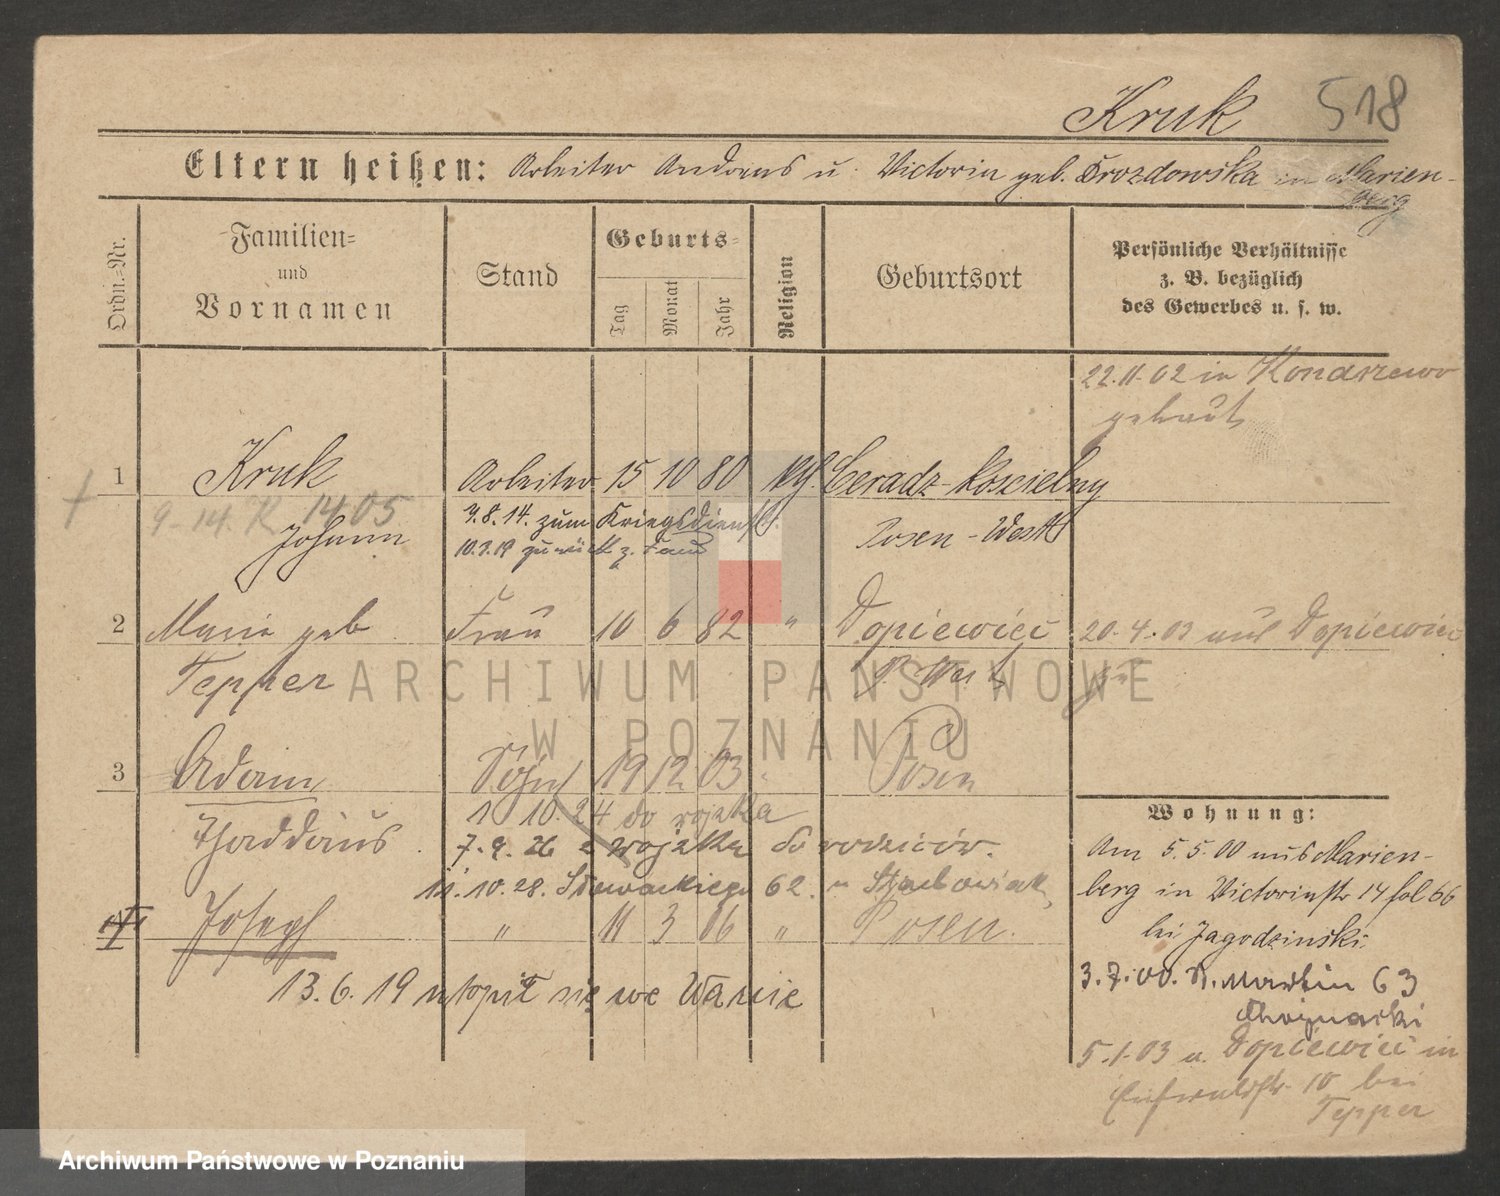 Kruk 518
Eltern heißen: Arbeiter Andreas u. Victoria geb. Drozdowska in Marien-
berg
Ordn.=Nr.
Familien=
und
Vornamen
Stand
Geburts=
Tag
Monat
Jahr
Religion
Geburtsort
Persönliche Verhältnisse
z. B. bezüglich
des Gewerbes u. s. w.
22.11.02 in Konarzewo
getraut
1 Kruk Arbeiter 15 10 80 kth. Ceradz-koscielny
9-14. K 1405
Johann 4.8.14. zum Kriegsdienst. Posen-West
10.3.19 zurück z. Frau
2 Marie geb Frau 10 6 82 " Dopiewiec 20.4.03 aus Dopiewiec
Tepper P. West zu
3 Adam Sohn 19 12 03 " Posen
Thaddäus 1 10.24 do wojska
7.9.26 z wojska do rodziców.
11.10.28. Słowackiego 62. u Stachowiak
Joseph " 11 3 06 " Posen.
13.6.19 utopił się we Warcie
Wohnung:
Am 5.5.00 aus Marien-
berg in Victoriastr 14 fol 66
bei Jagodzinski
3.7.00. St. Martin 63
Chojnacki
5.1.03 u. Dopiewiec in
10 bei
Tepper
ARCHIWUM PAŃSTWOWE
W POZNANIU
Archiwum Państwowe w Poznaniu